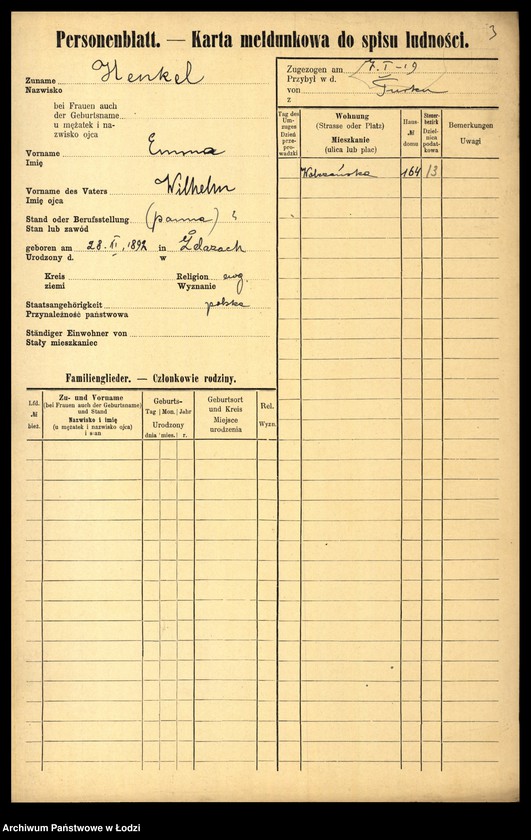 3
Personenblatt. — Karta meldunkowa do spisu ludności.
Zuname Henkel
Nazwisko
bei Frauen auch
der Geburtsname
u mężatek i na-
zwisko ojca
Vorname Emma
Imię
Vorname des Vaters Wilhelm
Imię ojca
Stand oder Berufsstellung (panna)
Stan lub zawód
geboren am 28. XI, 1892 in Żdżarach
Urodzony d. w
Kreis Religion ewg.
ziemi Wyznanie
Staatsangehörigkeit polska
Przynależność państwowa
Ständiger Einwohner von
Stały mieszkaniec
Zugezogen am 7. I – 19
Przybył w d.
von Turku
z
Tag des Um-zuges Dzień prze-pro-wadzki
Wohnung (Strasse oder Platz) Mieszkanie (ulica lub plac)
Haus- № domu
Steuer-bezirk Dziel-nica podat-kowa
Bemerkungen Uwagi
Wólczańska 164 13
Familienglieder. — Członkowie rodziny.
Lfd. № bież.
Zu- und Vorname (bei Frauen auch der Geburtsname) und Stand Nazwisko i imię (u mężatek i nazwisko ojca) i stan
Geburts- Tag Mon. Jahr Urodzony dnia mies. r.
Geburtsort und Kreis Miejsce urodzenia
Rel. Wyzn.
Archiwum Państwowe w Łodzi